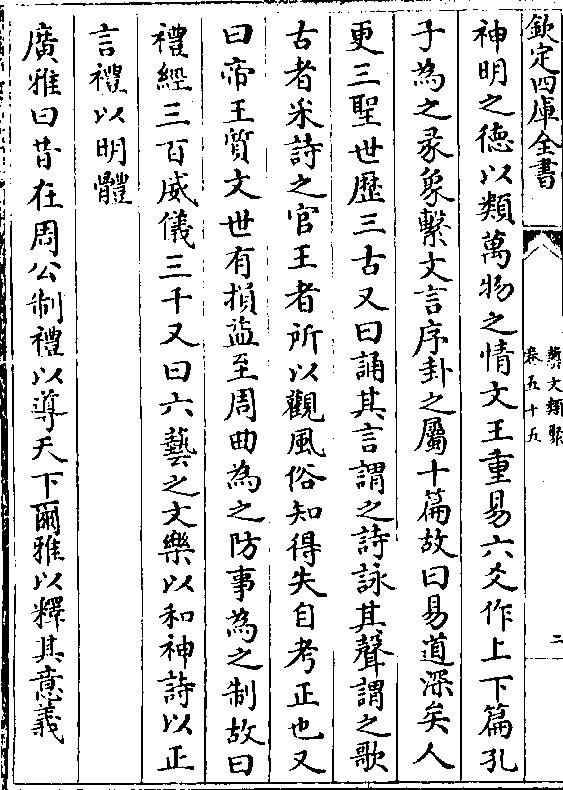 欽定四庫全書
藝文類聚
卷五十五
二
神明之德以類萬物之情文王重易六爻作上下篇孔
子為之彖象繫文言序卦之屬十篇故曰易道深矣人
更三聖世歴三古又曰誦其言謂之詩詠其聲謂之歌
古者采詩之官王者所以觀風俗知得失自考正也又
曰帝王質文世有損益至周曲為之防事為之制故曰
禮經三百威儀三千又曰六藝之文樂以和神詩以正
言禮以明體
廣雅曰昔在周公制禮以導天下爾雅以釋其意義